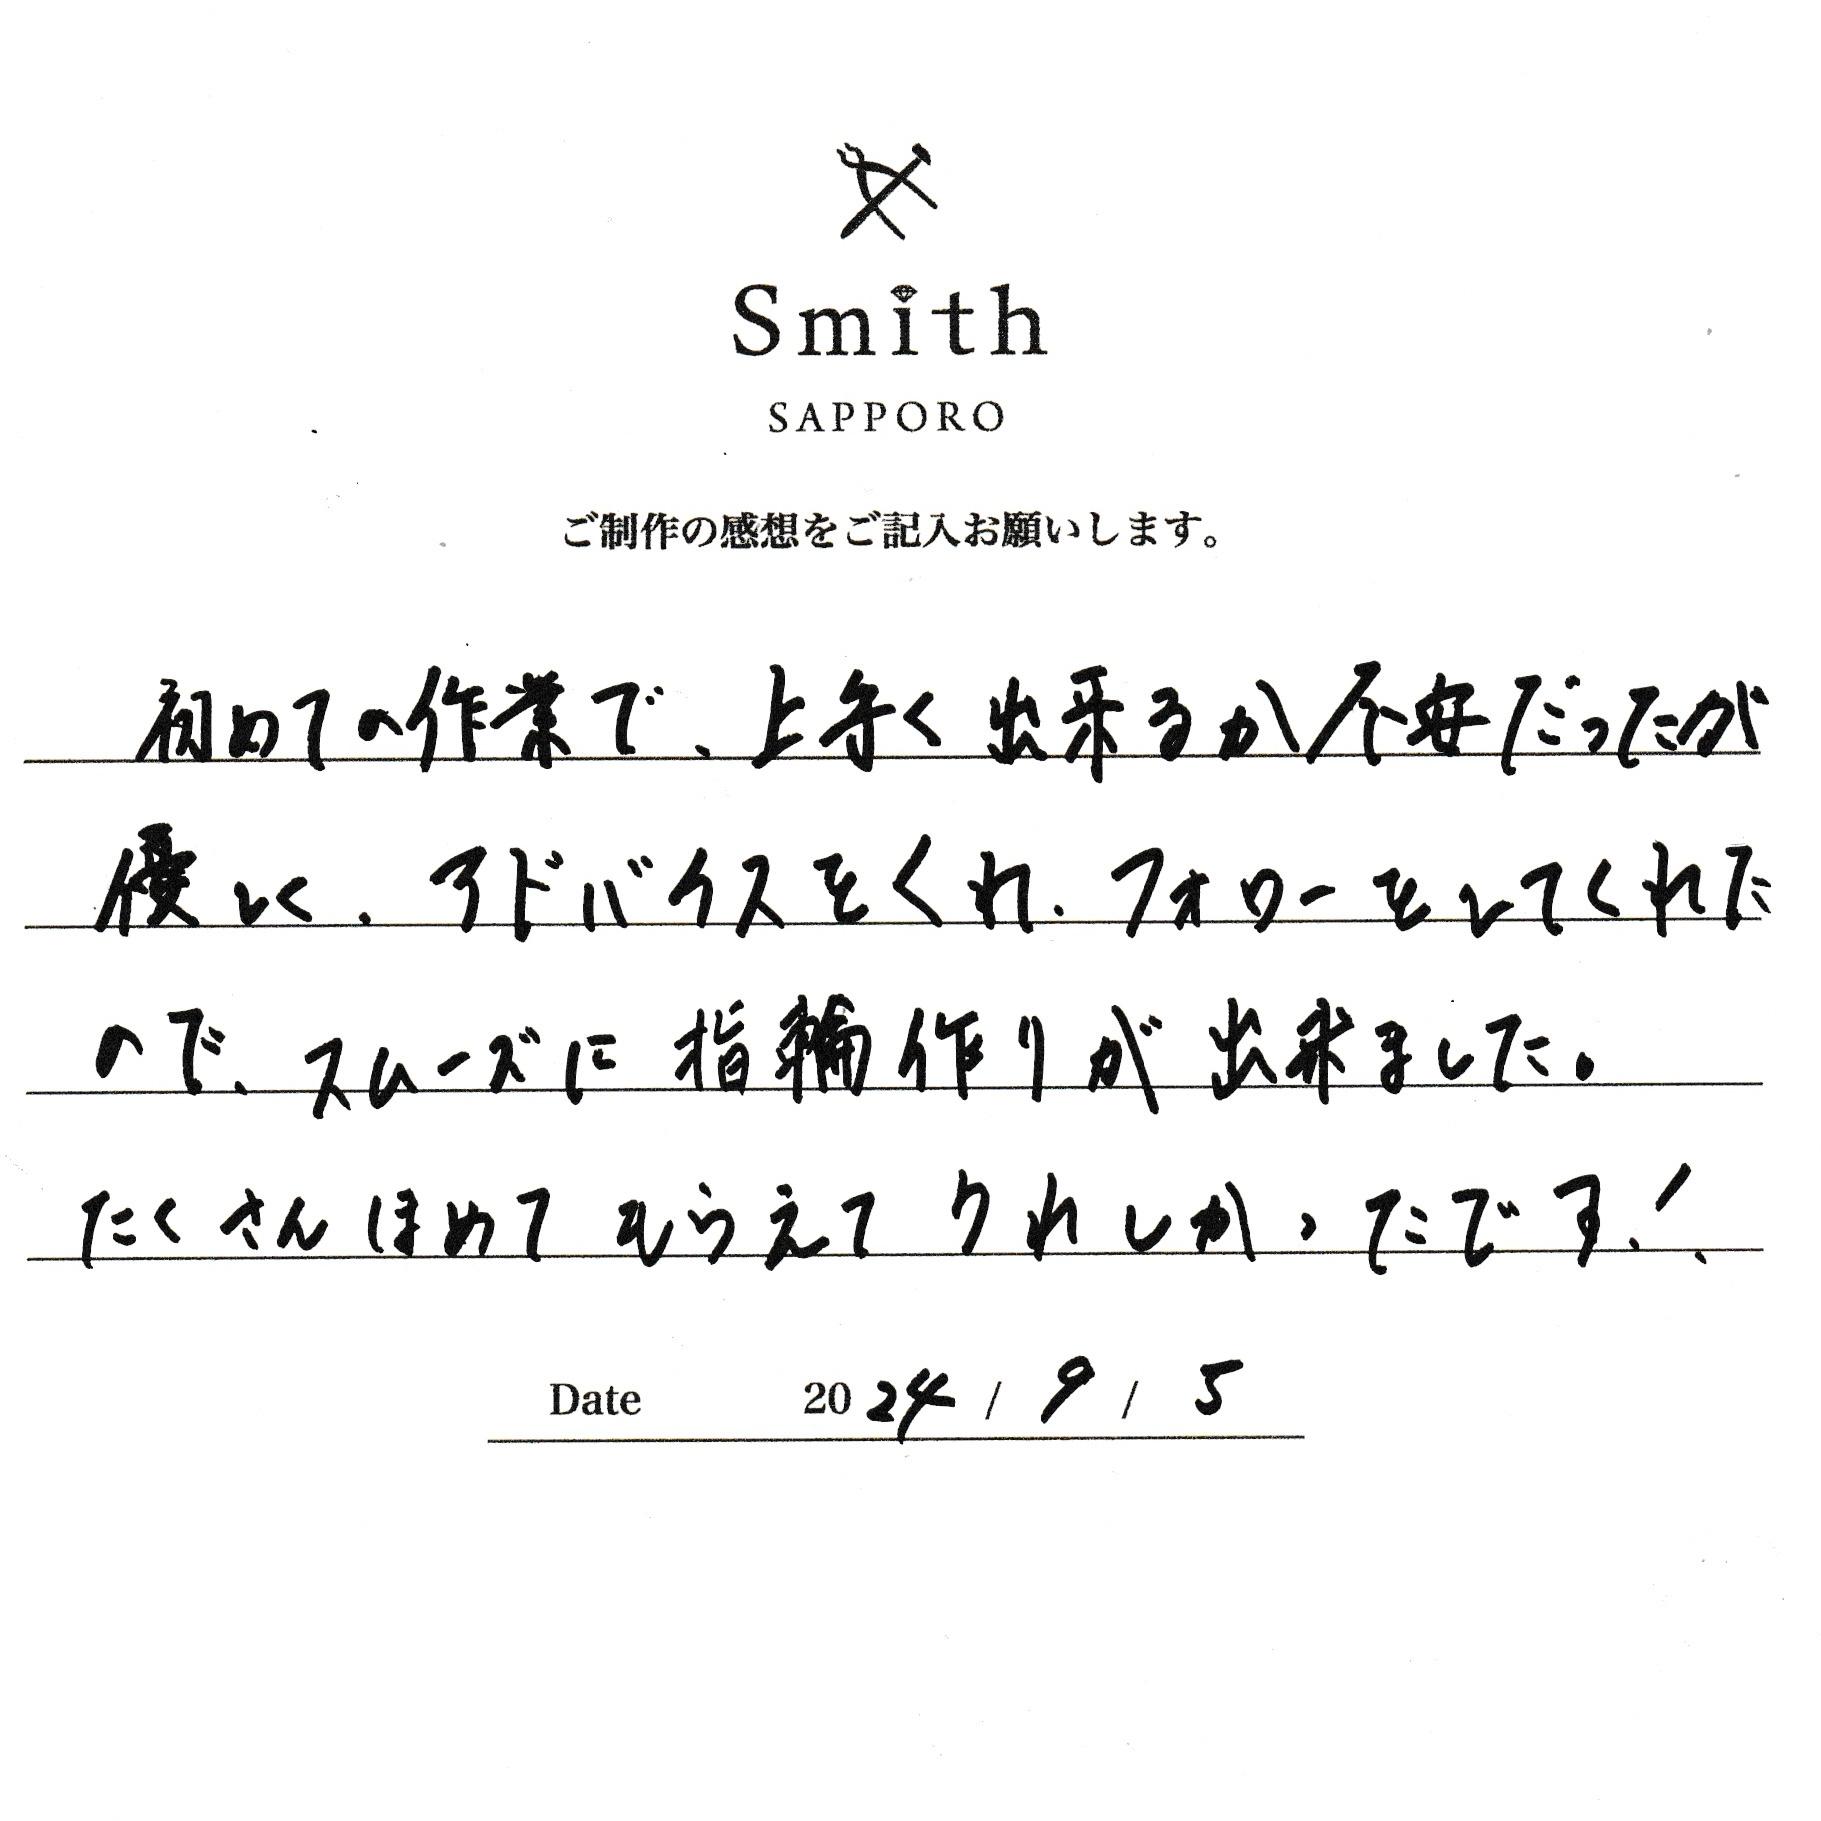 Smith
SAPPORO
ご制作の感想をご記入お願いします。
初めての作業で、上手く出来るか不安だったが
優しく、アドバイスをくれ、フォローをしてくれた
ので、スムーズに指輪作りが出来ました。
たくさんほめてもらえてうれしかったです!
Date 2024 / 9 / 5